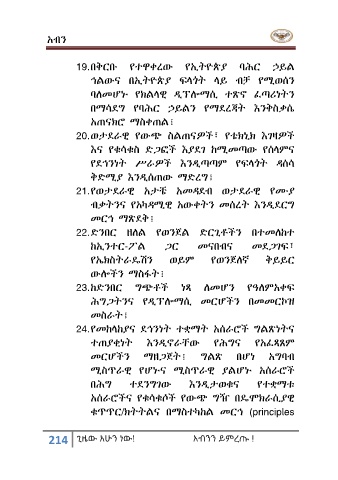 አብን
19.በቅርቡ የተዋቀረው የኢትዮጵያ ባሕር ኃይል
ኅልውና በኢትዮጵያ ፍላጎት ላይ ብቻ የሚወሰን
ባለመሆኑ የክልላዊ ዲፕሎማሲ ተጽኖ ፈጣሪነትን
በማሳደግ የባሕር ኃይልን የማደረጃት እንቅስቃሴ
አጠናክሮ ማስቀጠል፤
20.ወታደራዊ የውጭ ስልጠናዎች፣ የቴክኒክ እገዛዎች
እና የቁሳቁስ ድጋፎች እያደገ ከሚመጣው የሰላምና
የደኅንነት ሥራዎች እንዲጣጣም የፍላጎት ዳሰሳ
ቅድሚያ እንዲሰጠው ማድረግ፤
21.የወታደራዊ አታቼ አመዳደብ ወታደራዊ የሙያ
ብቃትንና የአካዳሚዊ እውቀትን መሰረት እንዲደርግ
መርኅ ማጽደቅ፤
22.ድንበር ዘለል የወንጀል ድርጊቶችን በተመለከተ
ከኢንተር-ፖል ጋር መናበብና መደጋገፍ፣
የኤክስትራዲሽን ወይም የወንጀለኛ ቅይይር
ውሎችን ማስፋት፤
23.ከድንበር ግጭቶች ነጻ ለመሆን የዓለምአቀፍ
ሕግጋትንና የዲፕሎማሲ መርሆችን በመመርኮዝ
መስራት፤
24.የመከላከያና ደኅንነት ተቋማት አሰራሮች ግልጽነትና
ተጠያቂነት እንዲኖራቸው የሕግና የአፈጻጸም
መርሆችን ማዘጋጀት፤ ግልጽ በሆነ አግባብ
ሚስጥራዊ የሆኑና ሚስጥራዊ ያልሆኑ አሰራሮች
በሕግ ተደንግገው እንዲታወቁና የተቋማቱ
አሰራሮችና የቁሳቁሶች የውጭ ግዥ በዴሞክራሲያዊ
ቁጥጥር/ክትትልና በማስተካከል መርኅ (principles
214 ጊዜው አሁን ነው! አብንን ይምረጡ !